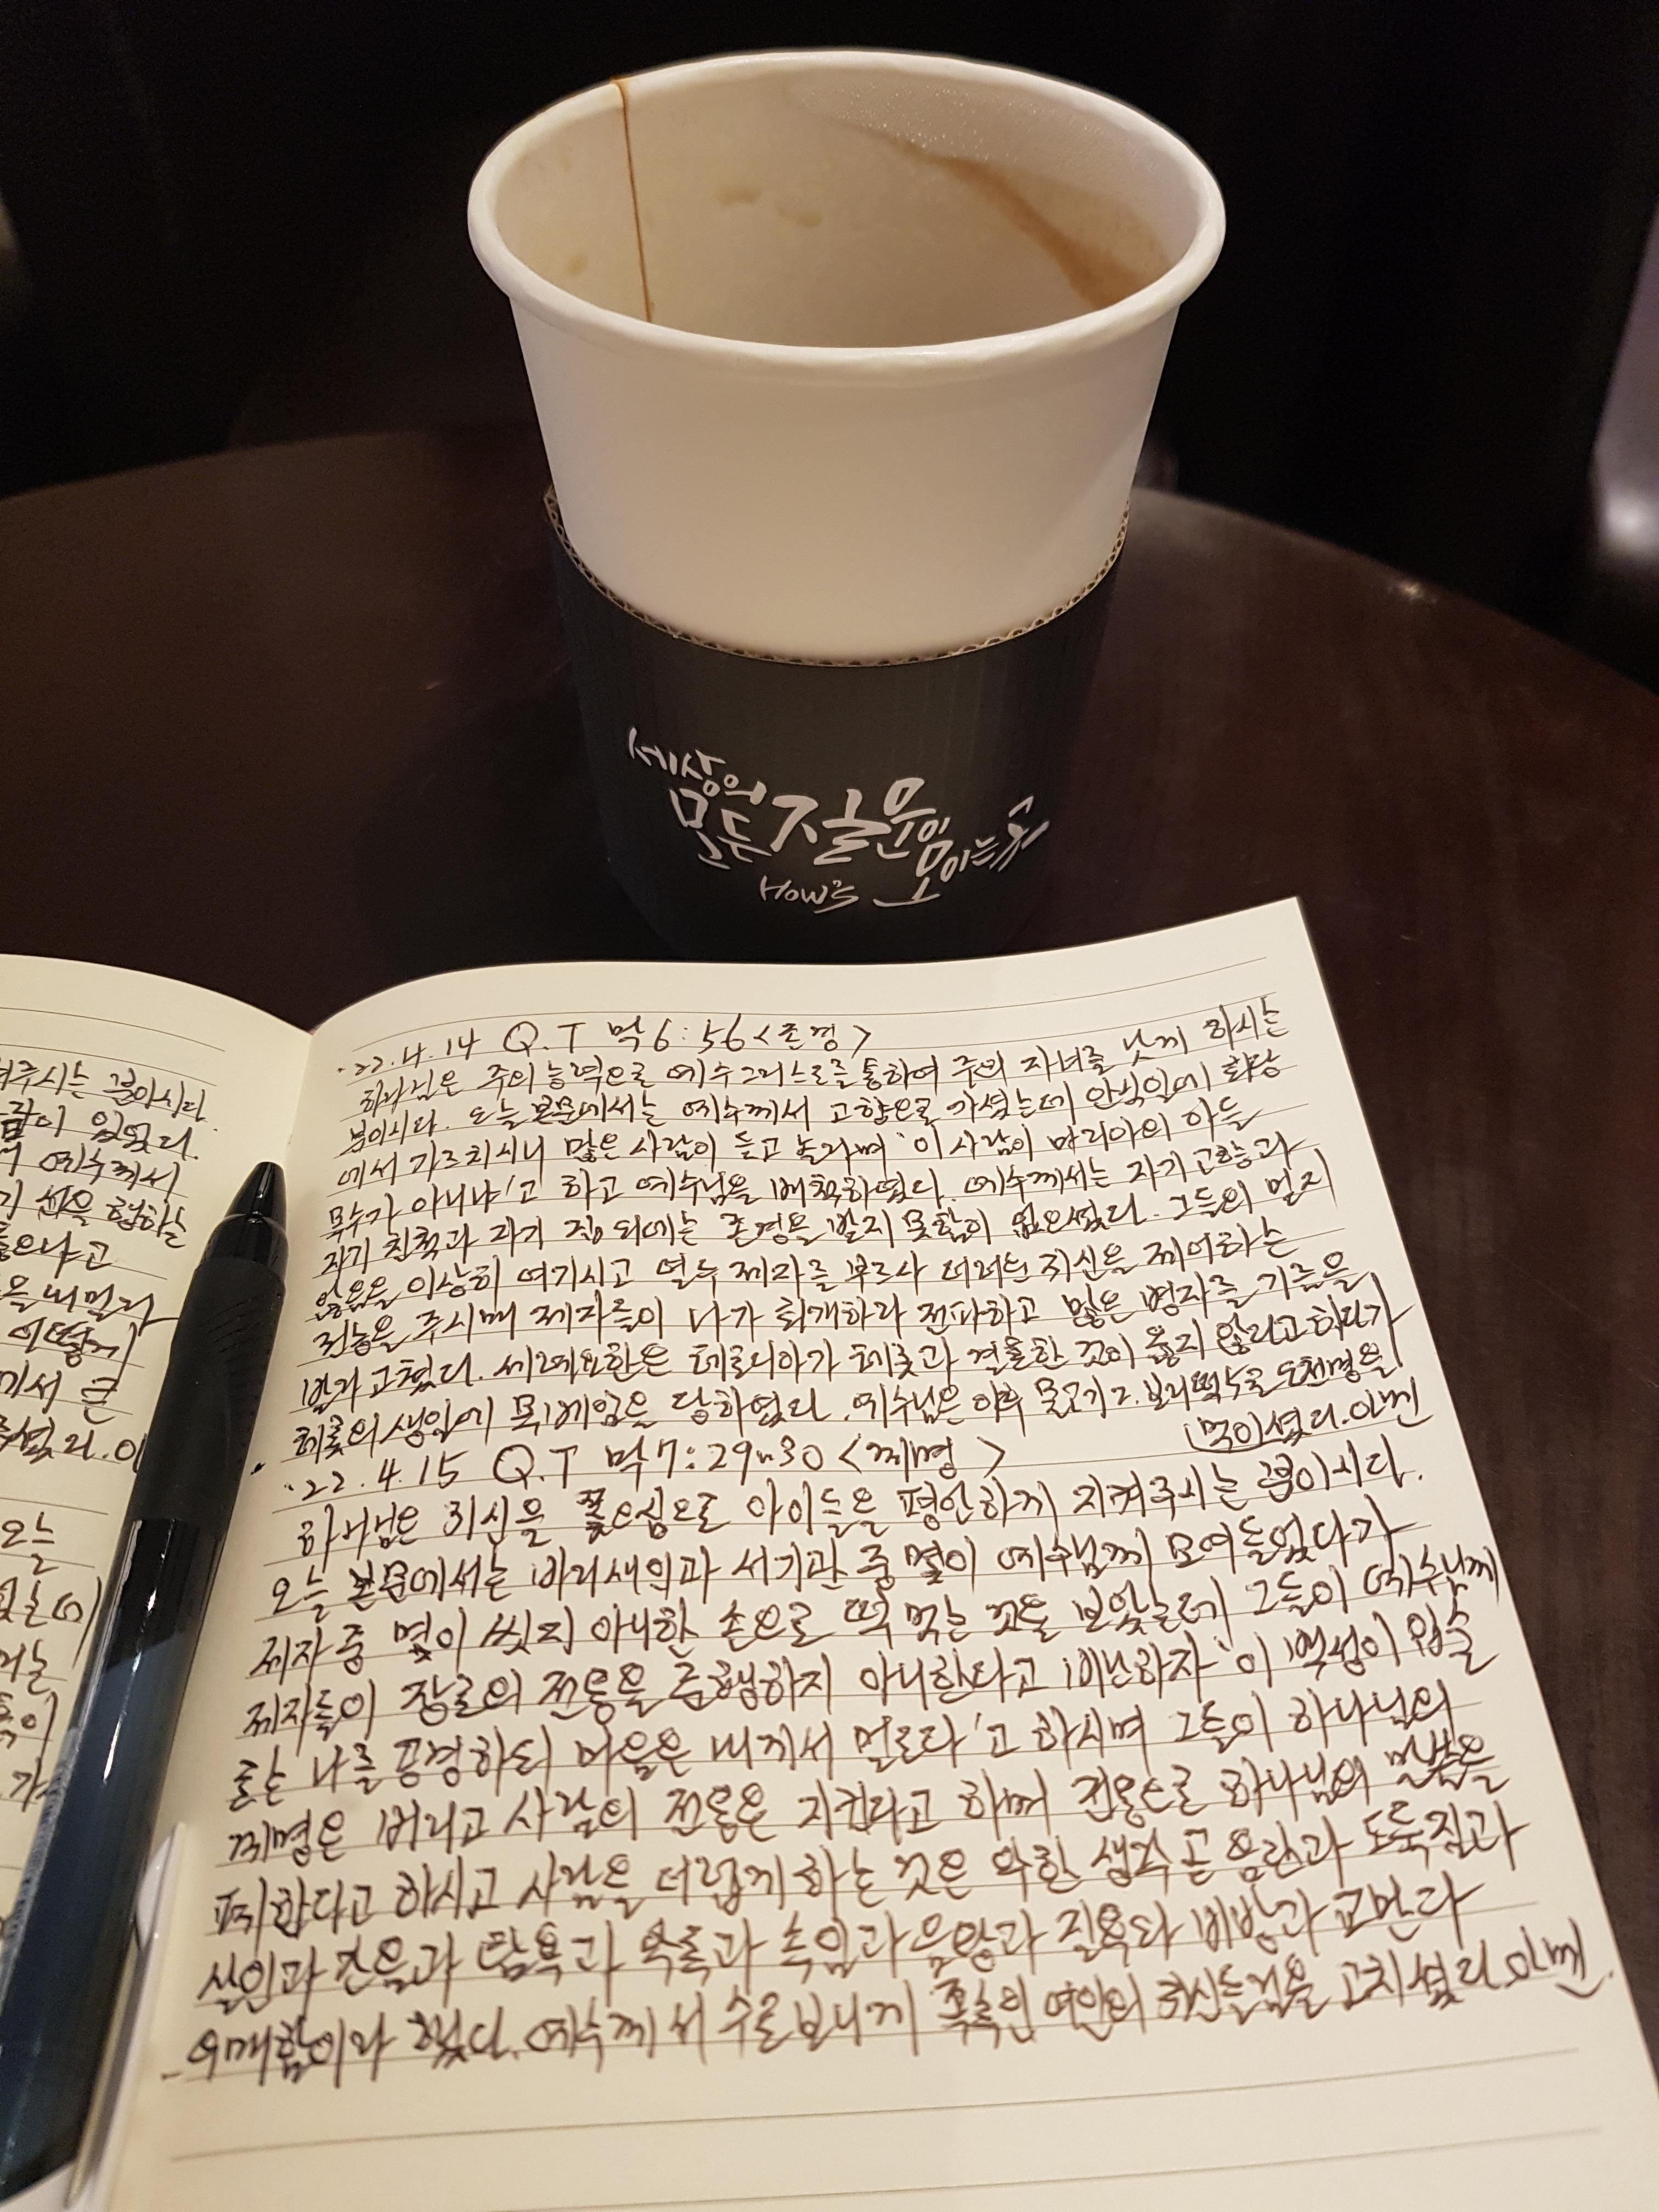 세상의
모든 질문이 모이는 곳
How's
겨주시는 분이시다.
이 있었다.
예수께서
선을 행하는
고
을 내밀라
어떻게
께서 큰
셨다. 이
오늘
'22.4.14 Q.T 막6:56 <존경>
하나님은 주의 능력으로 예수그리스도를 통하여 주의 자녀를 낫게 하시는
분이시다. 오늘 본문에서는 예수께서 고향으로 가셨는데 안식일에 회당
에서 가르치시니 많은 사람이 듣고 놀라며 '이 사람이 마리아의 아들
목수가 아니냐'고 하고 예수님을 배척하였다. 예수께서는 자기 고향과
자기 친척과 자기 집 외에는 존경을 받지 못함이 없으셨다. 그들의 믿지
않음을 이상히 여기시고 열두 제자를 부르사 더러운 귀신을 제어하는
권능을 주시매 제자들이 나가 회개하라 전파하고 많은 병자를 기름을
발라 고쳤다. 세례요한은 헤로디아가 헤롯과 결혼한 것이 옳지 않다고 하다가
헤롯의 생일에 목베임을 당하였다. 예수님은 이후 물고기2, 보리떡 5로 5천명을
먹이셨다. 아멘
'22.4.15 Q.T 막7:29~30 <계명>
하나님은 귀신을 쫓으심으로 아이들을 평안하게 지켜주시는 분이시다.
오늘 본문에서는 바리새인과 서기관 중 몇이 예수님께 모여들었다가
제자 중 몇이 씻지 아니한 손으로 떡 먹는 것을 보았는데 그들이 예수님께
제자들이 장로의 전통을 준행하지 아니한다고 비난하자 '이 백성이 입술
로는 나를 공경하되 마음은 내게서 멀도다'고 하시며 그들이 하나님의
계명은 버리고 사람의 전통은 지킨다고 하며 전통으로 하나님의 말씀을
폐한다고 하시고 사람을 더럽게 하는 것은 악한 생각 곧 음란과 도둑질과
살인과 간음과 탐욕과 악독과 속임과 음탕과 질투와 비방과 교만과
우매함이라 했다. 예수께서 수로보니게 족속인 여인의 귀신들림을 고치셨다. 아멘.